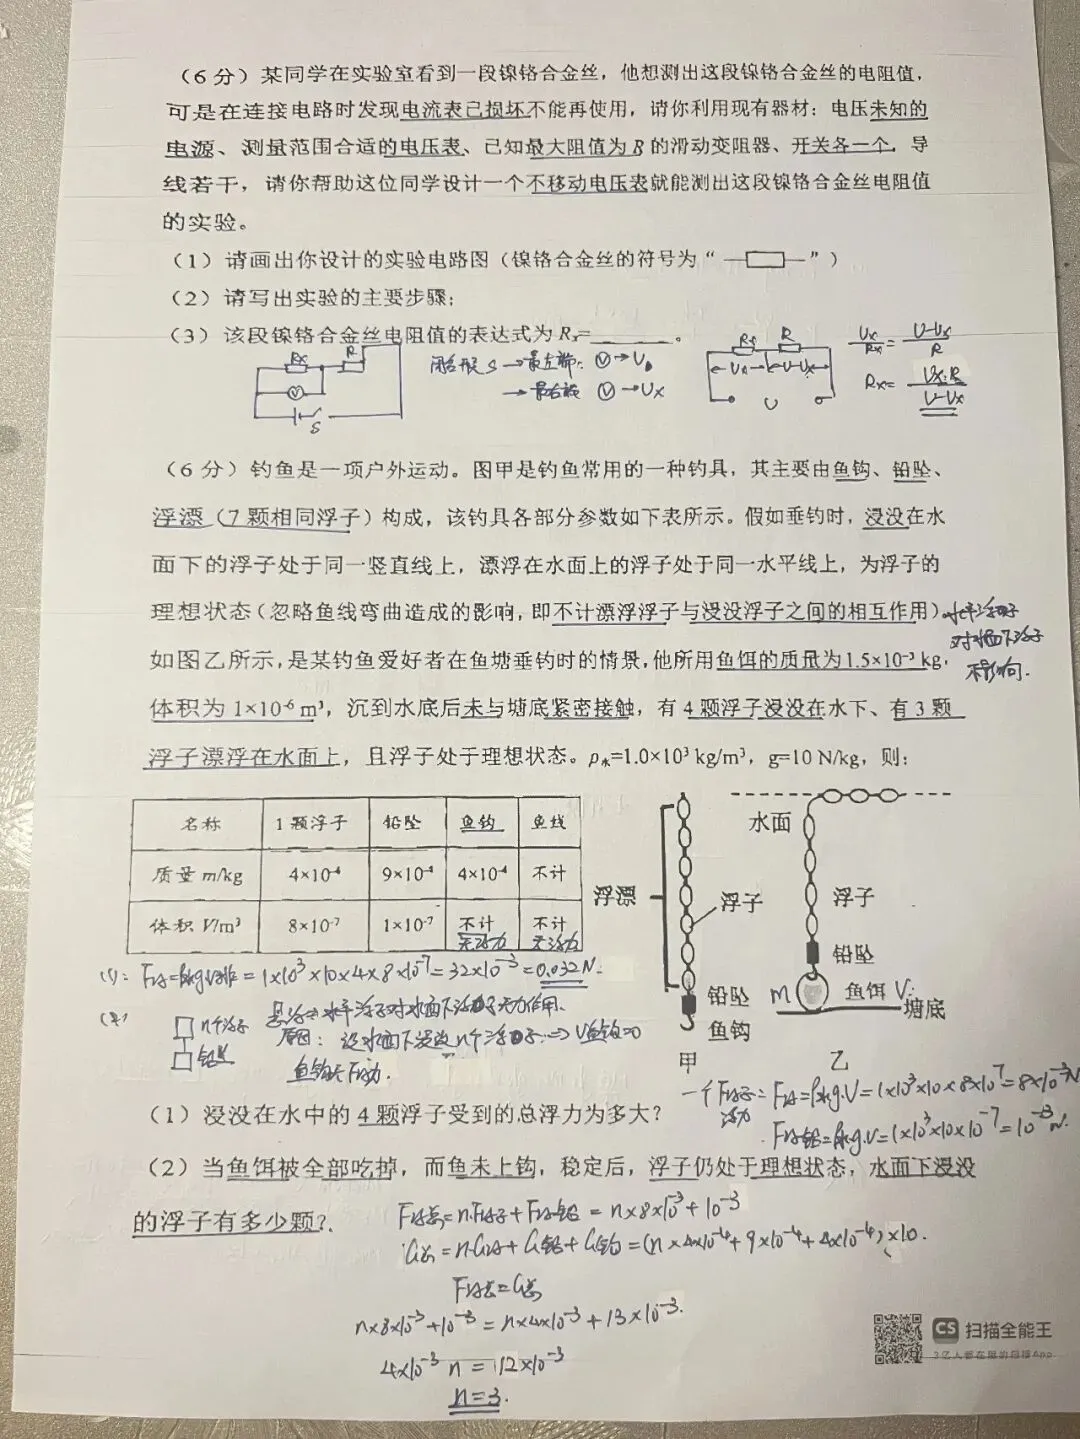 （6 分）某同学在实验室看到一段镍铬合金丝，他想测出这段镍铬合金丝的电阻值，
可是在连接电路时发现电流表已损坏不能再使用，请你利用现有器材：电压未知的
电源、测量范围合适的电压表、已知最大阻值为 R 的滑动变阻器、开关各一个，导
线若干，请你帮助这位同学设计一个不移动电压表就能测出这段镍铬合金丝电阻值
的实验。
（1）请画出你设计的实验电路图（镍铬合金丝的符号为“ ”）
（2）请写出实验的主要步骤；
（3）该段镍铬合金丝电阻值的表达式为 Rₓ=______。
Rx R
V
S
闭合开关 S → 最左端: V →U
→ 最右端 V →Ux
Rx R
U
Ux/Rx = U-Ux/R
Rx= Ux·R/U-Ux
（6 分）钓鱼是一项户外运动。图甲是钓鱼常用的一种钓具，其主要由鱼钩、铅坠、
浮漂（7 颗相同浮子）构成，该钓具各部分参数如下表所示。假如垂钓时，浸没在水
面下的浮子处于同一竖直线上，漂浮在水面上的浮子处于同一水平线上，为浮子的
理想状态（忽略鱼线弯曲造成的影响，即不计漂浮浮子与浸没浮子之间的相互作用）.
水平浮子
对水面下浮子
不影响.
如图乙所示，是某钓鱼爱好者在鱼塘垂钓时的情景，他所用鱼饵的质量为1.5×10⁻³ kg，
体积为 1×10⁻⁶ m³，沉到水底后未与塘底紧密接触，有 4 颗浮子浸没在水下、有 3 颗
浮子漂浮在水面上，且浮子处于理想状态。ρ水=1.0×10³ kg/m³，g=10 N/kg，则：
名称 1 颗浮子 铅坠 鱼钩 鱼线
质量 m/kg 4×10⁻⁴ 9×10⁻⁴ 4×10⁻⁴ 不计
体积 V/m³ 8×10⁻⁷ 1×10⁻⁷ 不计 不计
无浮力 无浮力
浮漂
浮子
铅坠
鱼钩
甲
水面
浮子
铅坠
m 鱼饵 V
塘底
乙
(1): F浮=ρ水gV排=1×10³×10×4×8×10⁻⁷=32×10⁻³=0.032N.
n个浮子
铅坠
水平浮子对水面下浮子无力作用.
原因: 设水面下浸没n个浮子 ⇒ V鱼钩=0
鱼钩无F浮.
一个F浮子= F浮=ρ水g·V=1×10³×10×8×10⁻⁷=8×10⁻³N
浮力
F浮铅=ρ水g·V=1×10³×10×10⁻⁷=10⁻³N.
（1）浸没在水中的 4 颗浮子受到的总浮力为多大？
（2）当鱼饵被全部吃掉，而鱼未上钩，稳定后，浮子仍处于理想状态，水面下浸没
的浮子有多少颗？
F浮总=n·F浮子+F浮铅=n×8×10⁻³+10⁻³
G总=n·G浮+G铅+G钩=(n×4×10⁻⁴+9×10⁻⁴+4×10⁻⁴)×10.
F浮总=G总
n×8×10⁻³+10⁻³=n×4×10⁻³+13×10⁻³.
4×10⁻³ n = 12×10⁻³
n=3.
CS 扫描全能王
3亿人都在用的扫描App